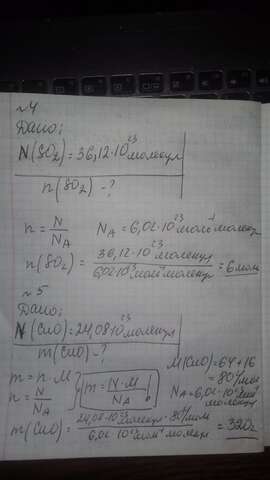 №4
Дано:
N(SO₂)=36,12·10²³ молекул
n(SO₂) - ?
n = N/N_A   N_A = 6,02·10²³ моль⁻¹ молекул
n(SO₂) = 36,12·10²³ молекул / 6,02·10²³ моль⁻¹ молекул = 6 моль
№5
Дано:
N(CuO)=24,08·10²³ молекул
m(CuO) - ?
M(CuO)=64+16
m = n·M   m = N·M/N_A   = 80 г/моль
n = N/N_A   N_A = 6,02·10²³ моль⁻¹ молекул
m(CuO) = 24,08·10²³ молекул · 80 г/моль / 6,02·10²³ моль⁻¹ молекул = 320 г